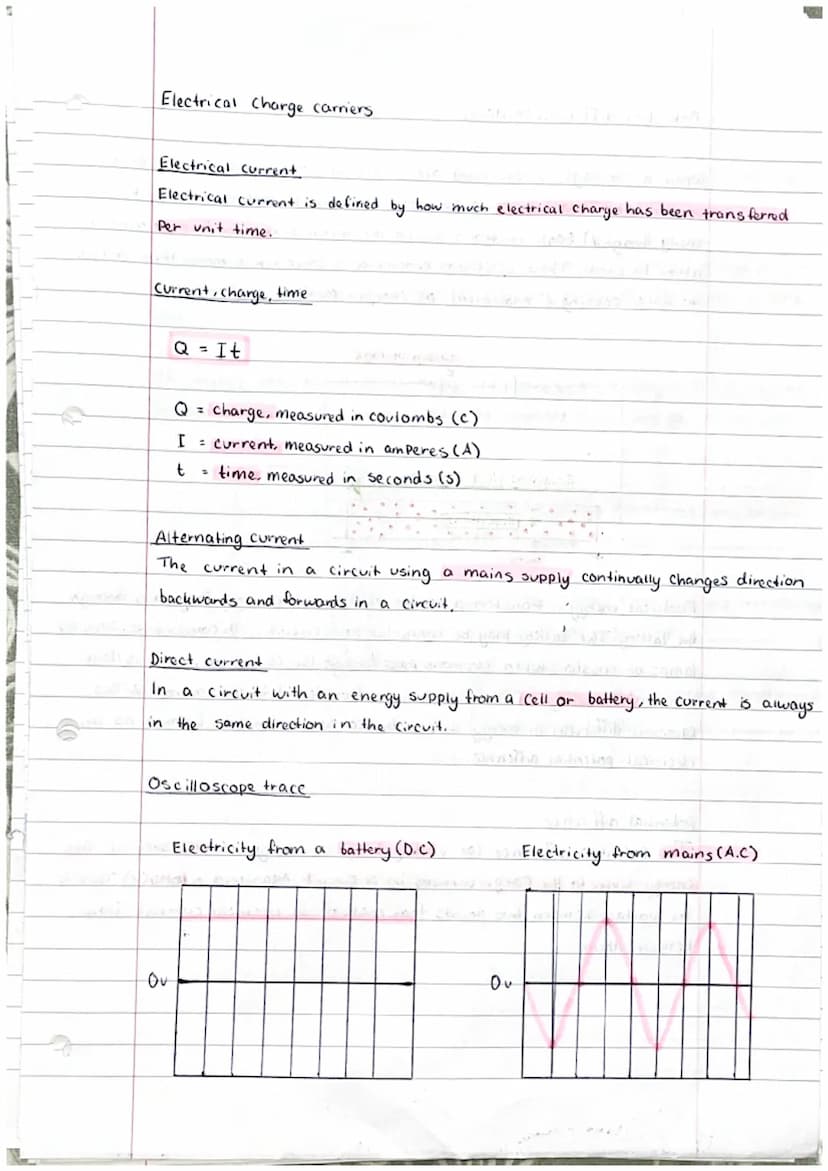 Electrical charge carriers
Electrical current
Electrical current is defined by how much electrical charge has been transferred
per unit time.
Current, charge, time
Q = It
Q = charge, measured in coulombs (C)
I = current, measured in amperes (A)
t = time, measured in seconds (s)
Alternating current
The current in a circuit using a mains supply continually changes direction
backwards and forwards in a circuit.
Direct current
In a circuit with an energy supply from a cell or battery, the current is always
in the same direction in the circuit.
Oscilloscope trace
Electricity from a battery (D.C)
Electricity from mains (A.C)
0v
0v